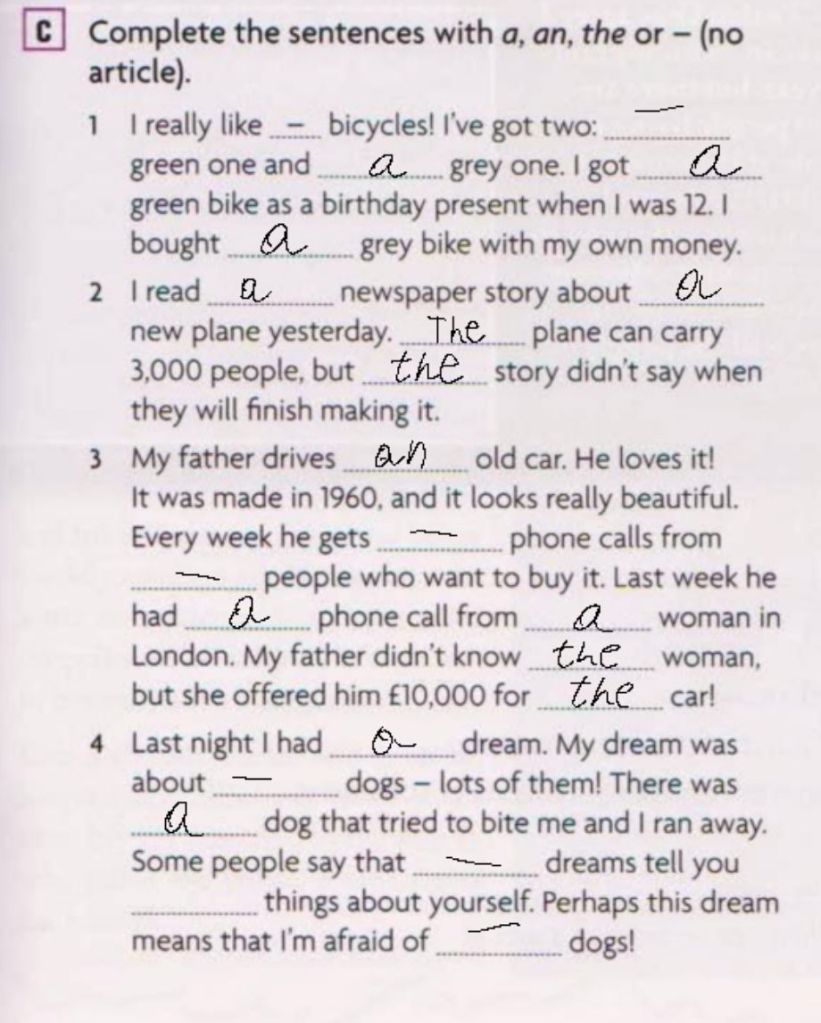 C Complete the sentences with a, an, the or – (no
article).
1 I really like – bicycles! I've got two: —
green one and a grey one. I got a
green bike as a birthday present when I was 12. I
bought a grey bike with my own money.
2 I read a newspaper story about a
new plane yesterday. The plane can carry
3,000 people, but the story didn't say when
they will finish making it.
3 My father drives an old car. He loves it!
It was made in 1960, and it looks really beautiful.
Every week he gets — phone calls from
— people who want to buy it. Last week he
had a phone call from a woman in
London. My father didn't know the woman,
but she offered him £10,000 for the car!
4 Last night I had a dream. My dream was
about — dogs – lots of them! There was
a dog that tried to bite me and I ran away.
Some people say that — dreams tell you
............ things about yourself. Perhaps this dream
means that I'm afraid of — dogs!